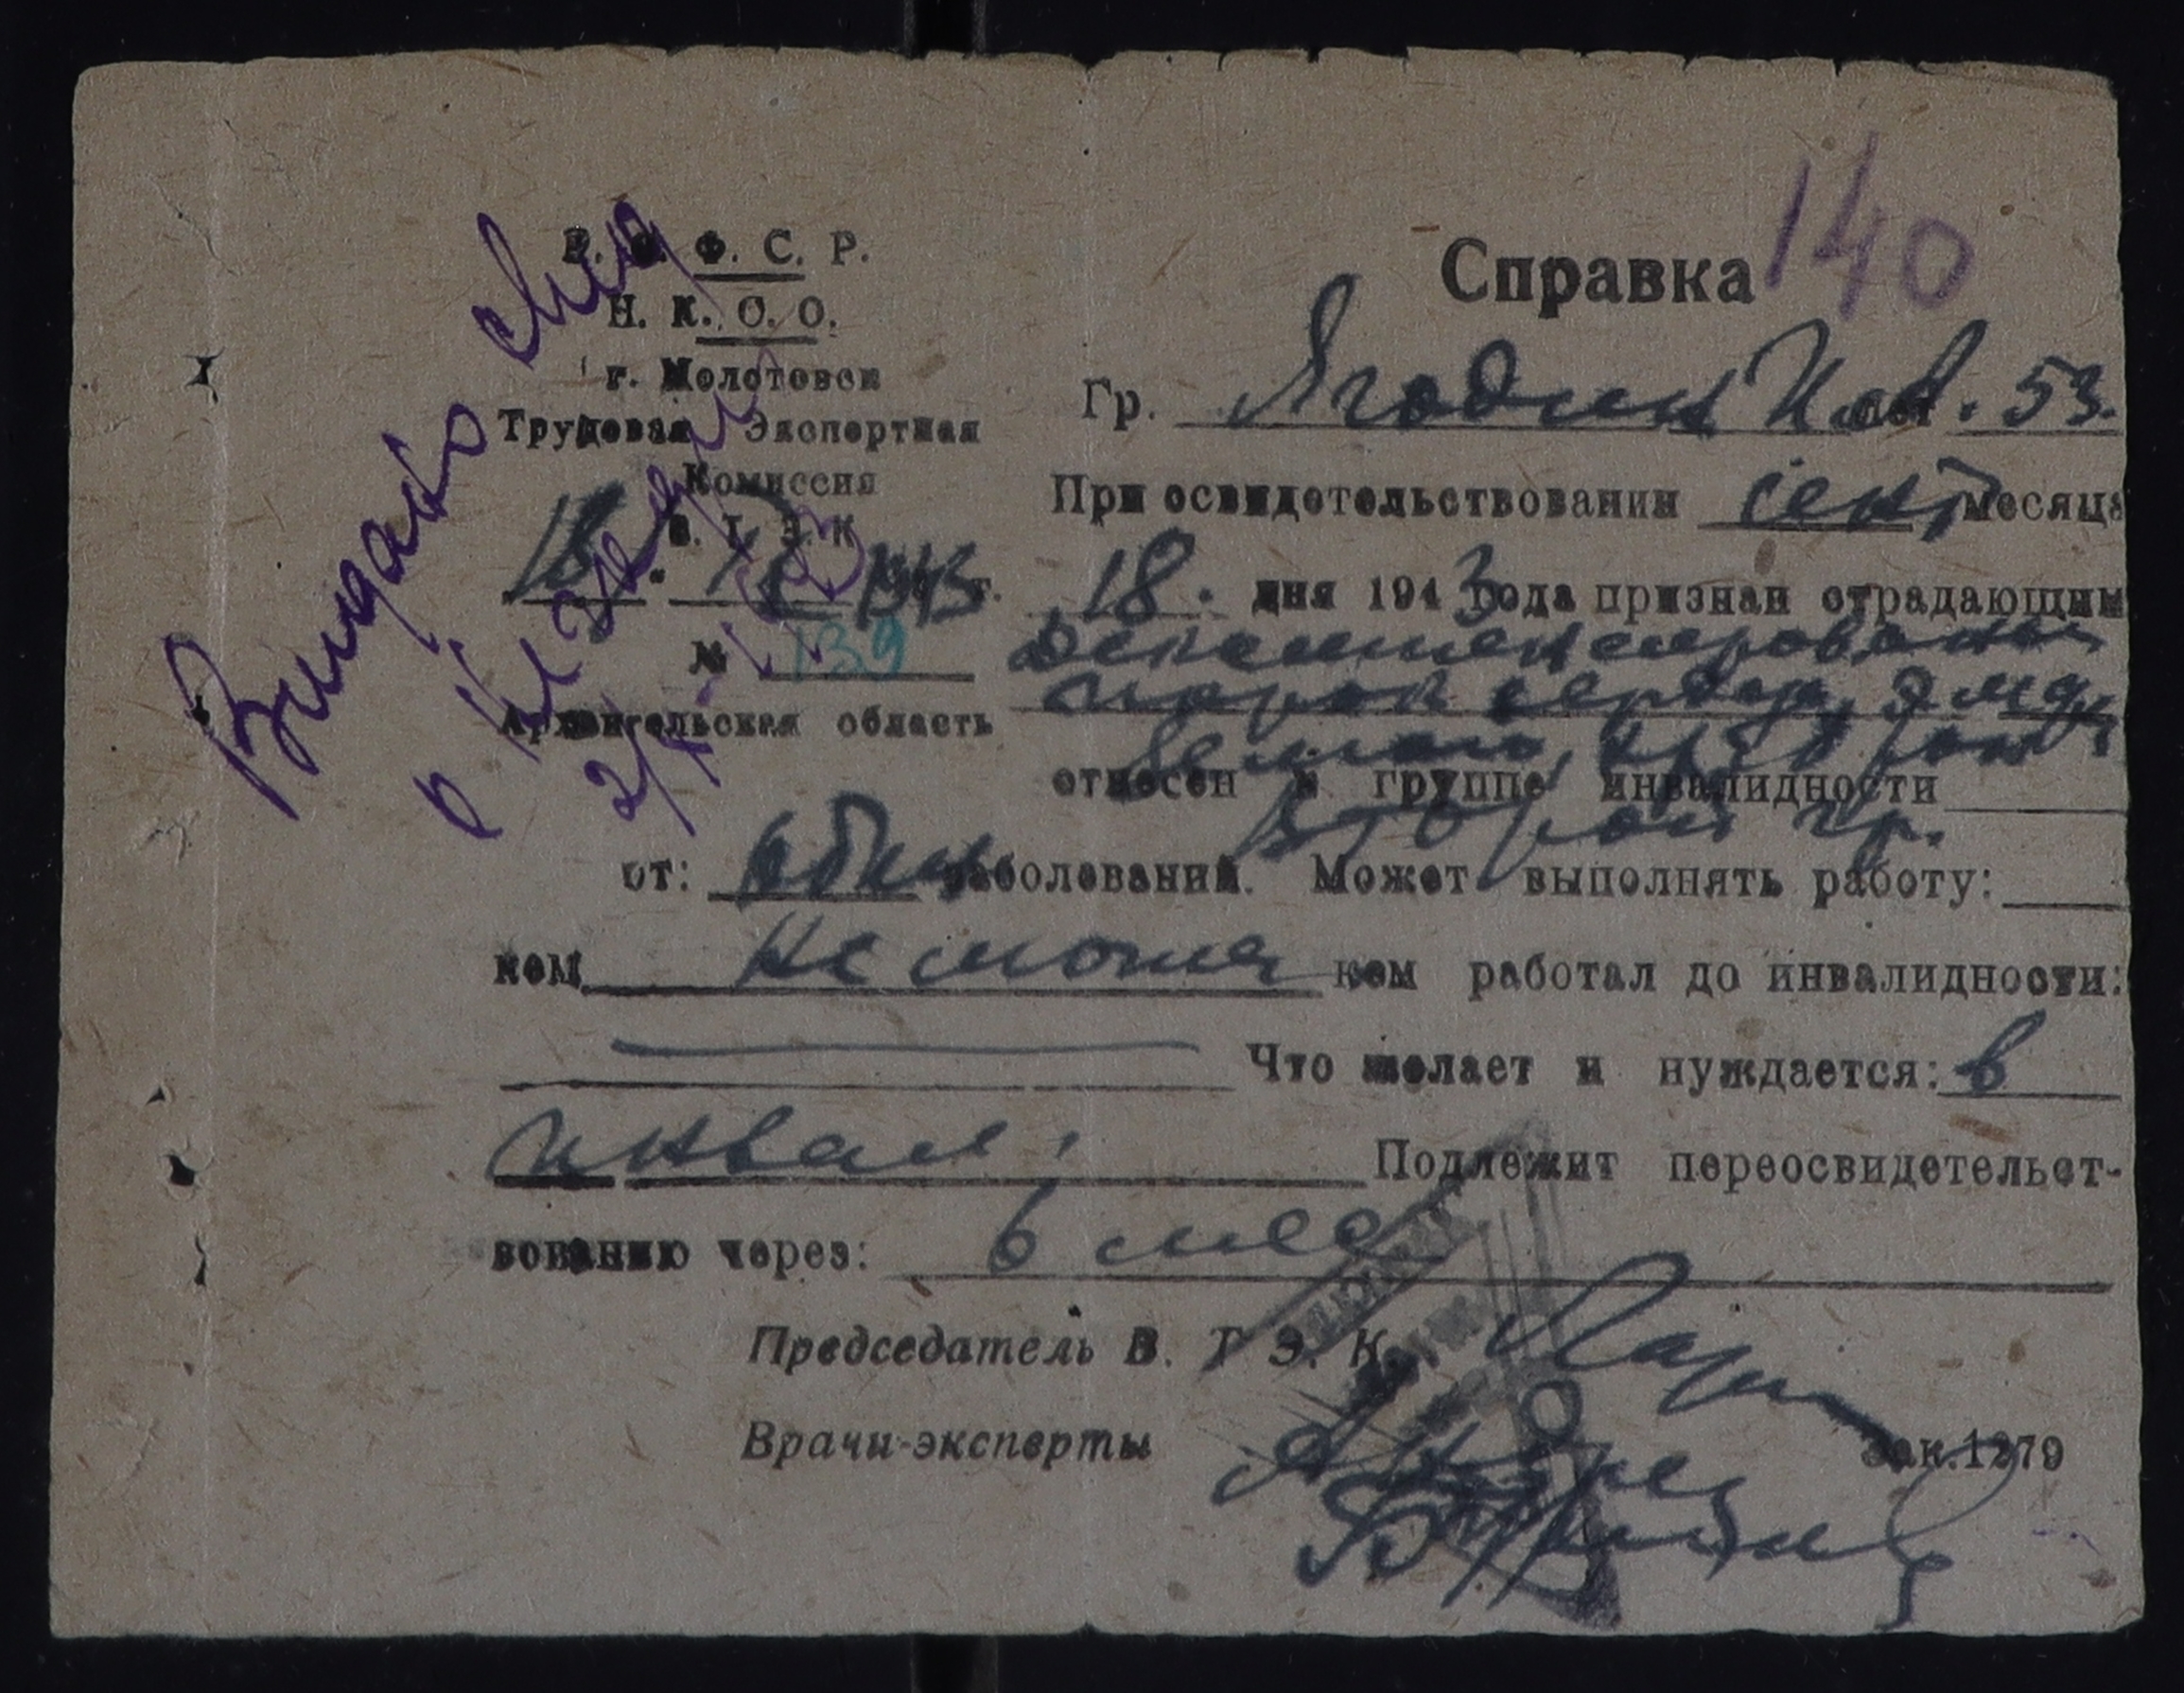 140
Р. С. Ф. С. Р.
Н. К. С. О.
г. Молотовск
Трудовая Экспертная
Комиссия
В. Т. Э. К
18. IX 1943 г.
№ 139
Архангельская область
Выдано
2/X-43
Справка
Гр. Ягодин Ив. лет. 53.
При освидетельствовании сент месяца
18. дня 1943 года признан страдающим
декомпенсированый
порок сердца,
отнесен к группе инвалидности
второй гр.
от: общ заболеваний. Может выполнять работу:
кем не может кем работал до инвалидности:
Что желает и нуждается: в
инвал.
Подлежит переосвидетельст-
вованию через: 6 мес
Председатель В. Т. Э. К.
Врачи-эксперты
Зак.1279